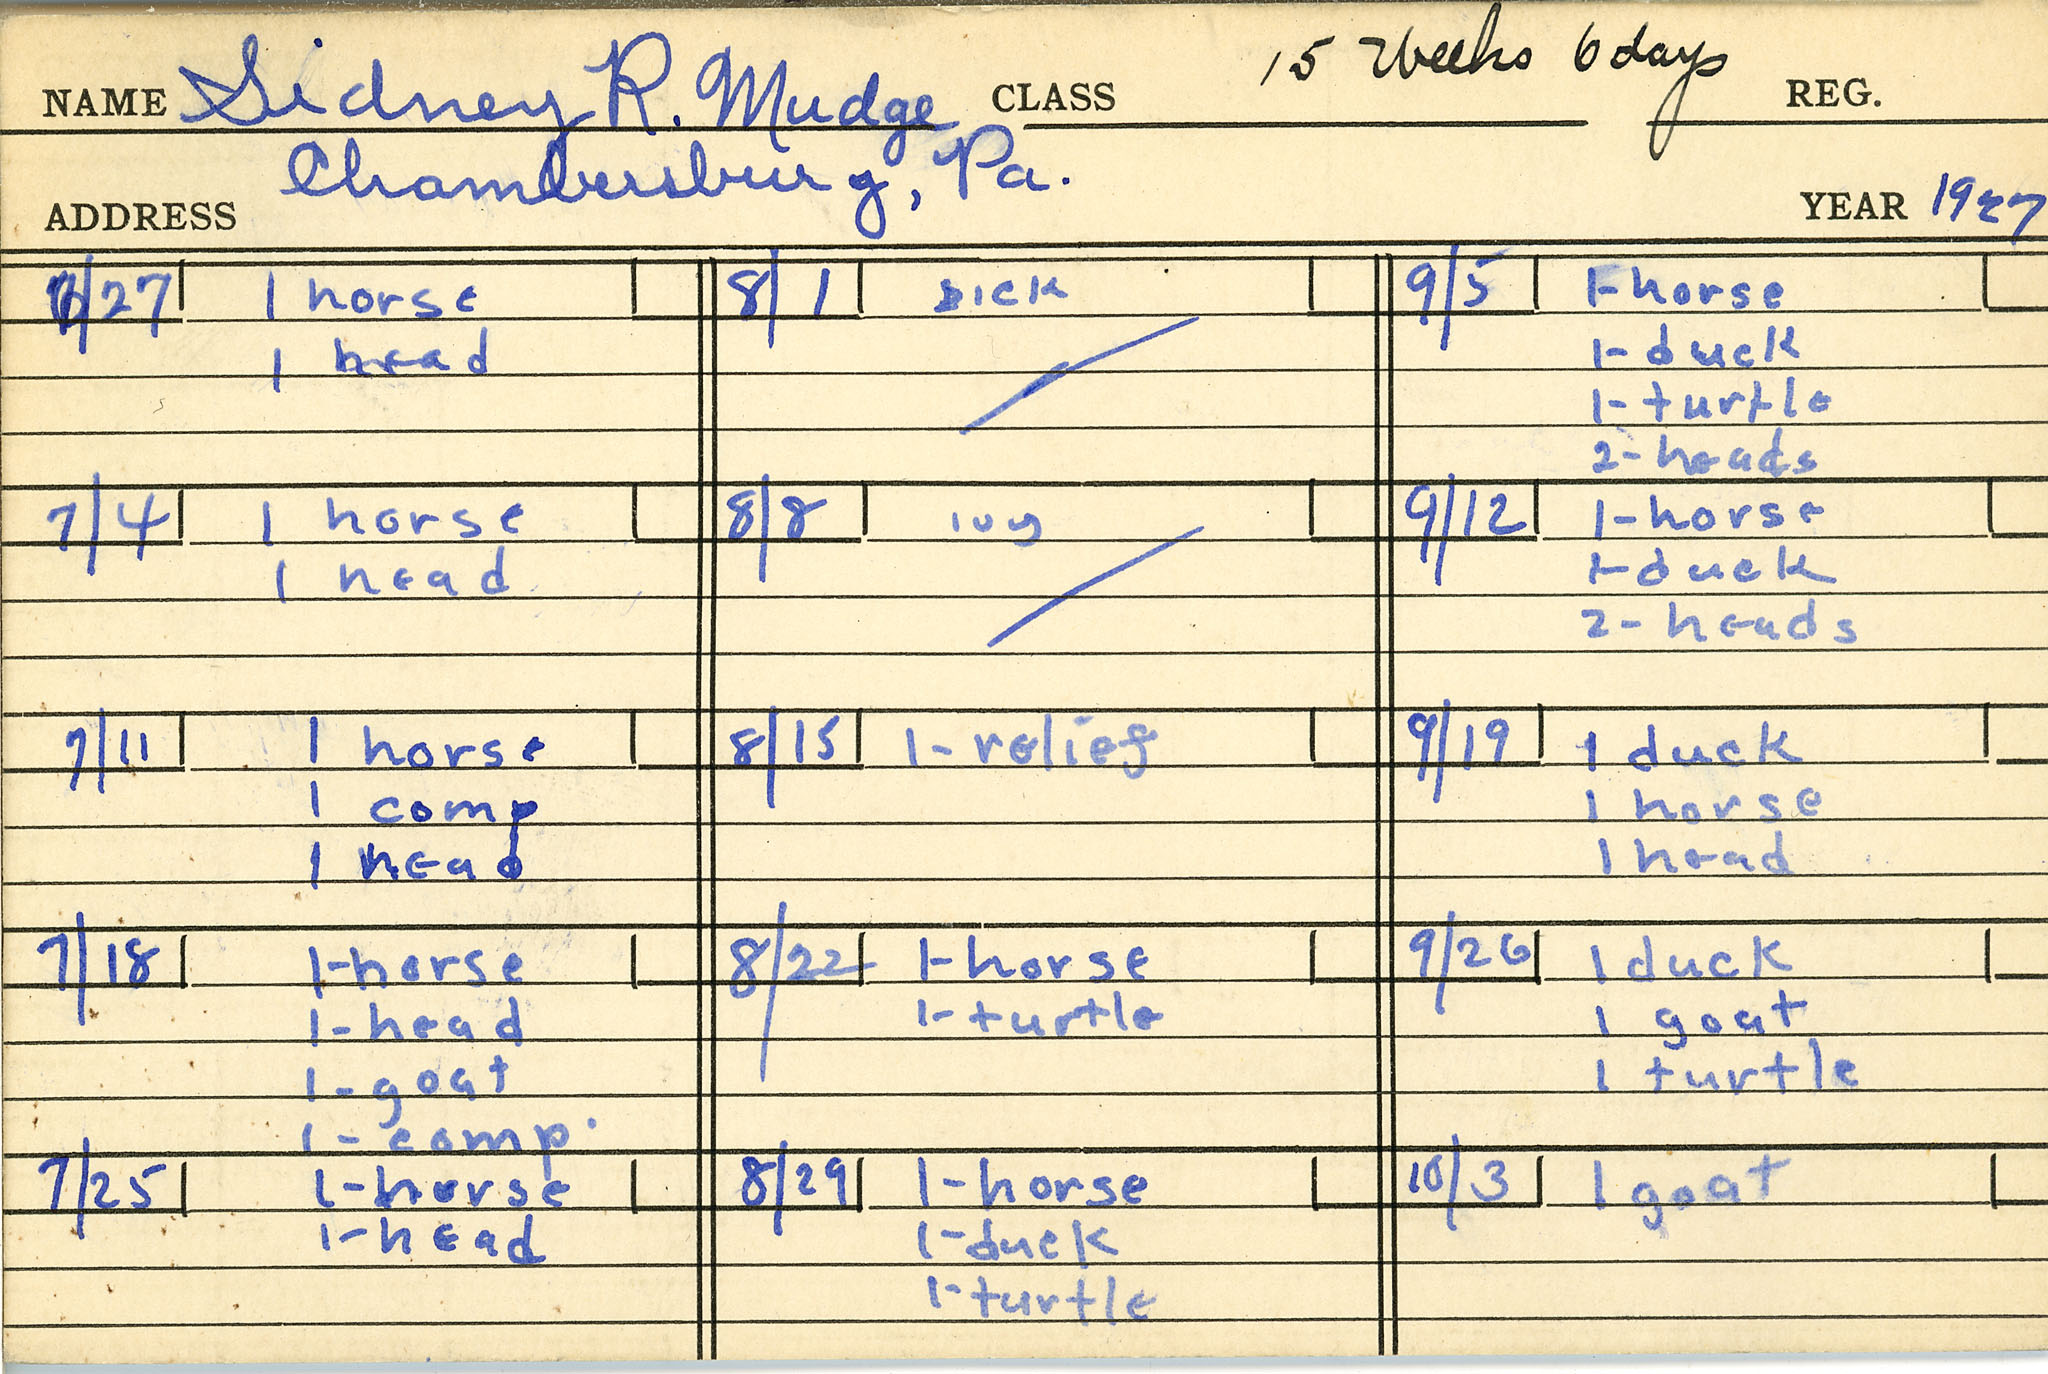 NAME Sidney R. Mudge CLASS 15 Weeks 6 days REG.
ADDRESS Chambersburg, Pa. YEAR 1927
6/27 1 horse
1 head
7/4 1 horse
1 head
7/11 1 horse
1 comp
1 head
7/18 1-horse
1-head
1-goat
1-comp.
7/25 1-horse
1-head
8/1 sick
8/8 ivy
8/15 1-relief
8/22 1-horse
1-turtle
8/29 1-horse
1-duck
1-turtle
9/5 1-horse
1-duck
1-turtle
2-heads
9/12 1-horse
1-duck
2-heads
9/19 1 duck
1 horse
1 head
9/26 1 duck
1 goat
1 turtle
10/3 1 goat